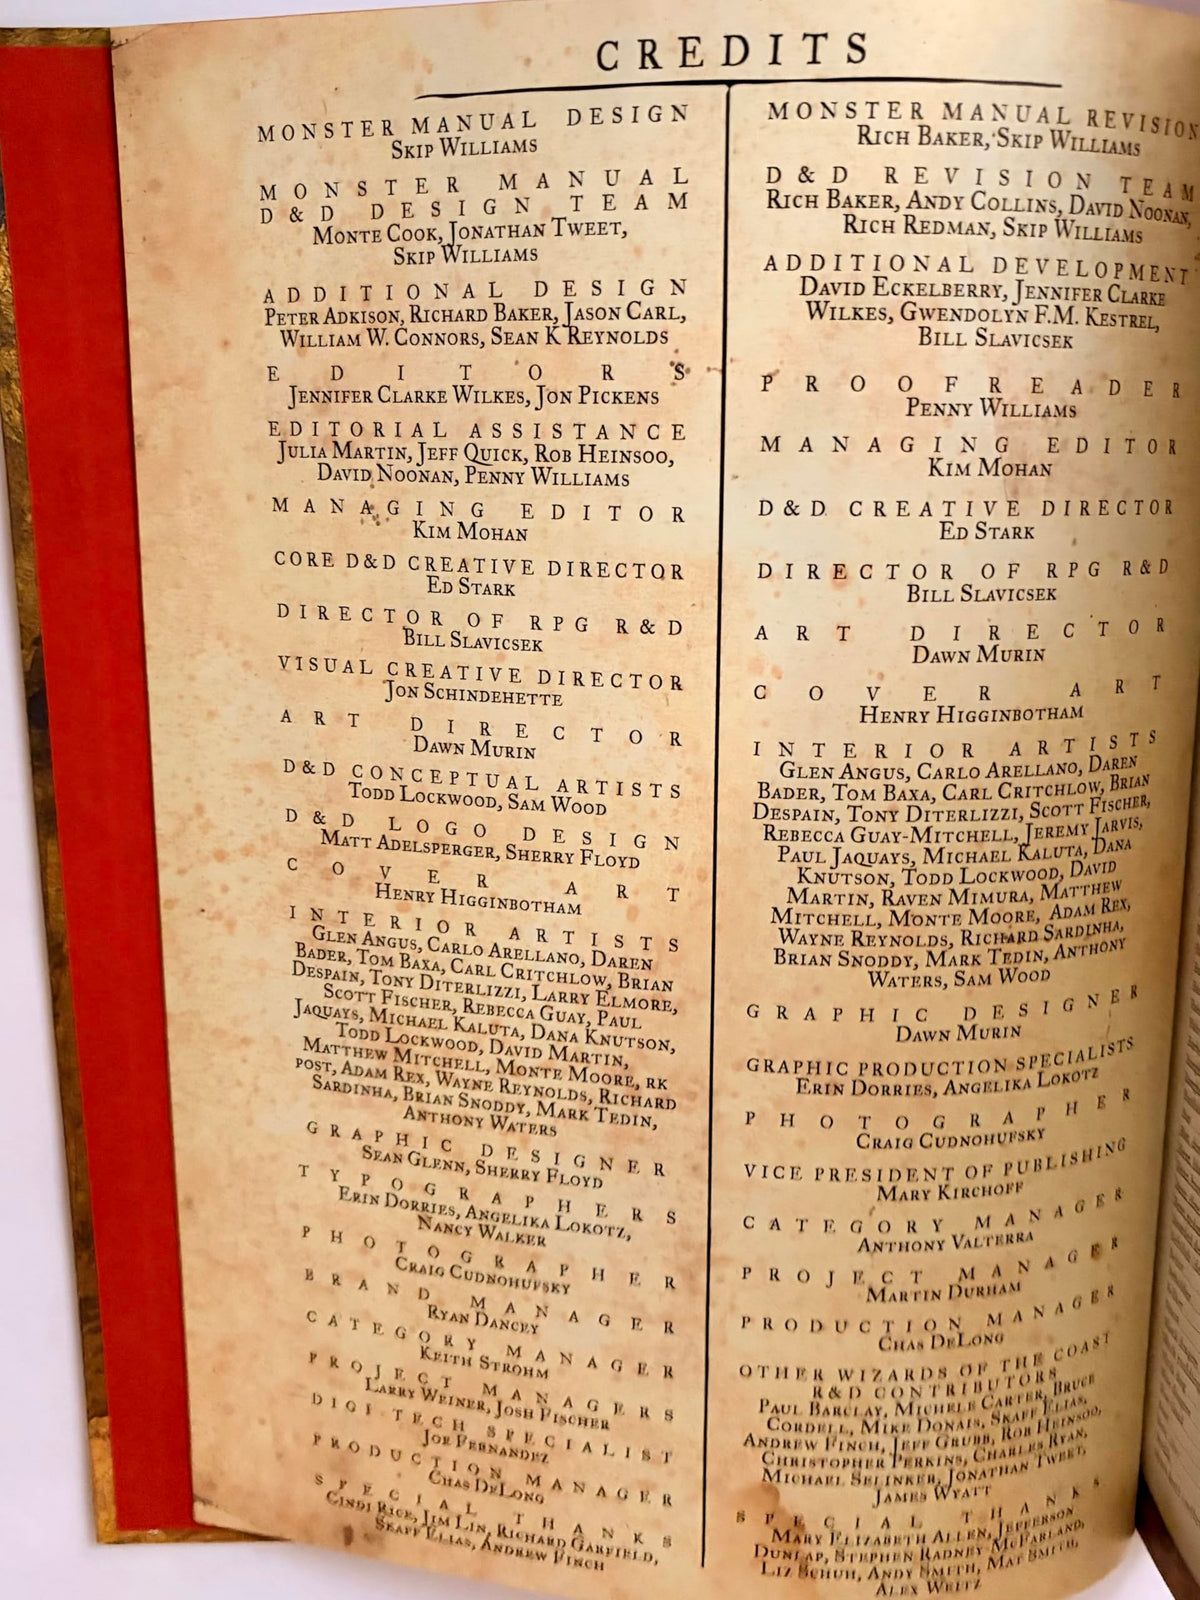 CREDITS
MONSTER MANUAL DESIGN
SKIP WILLIAMS
MONSTER MANUAL
D&D DESIGN TEAM
MONTE COOK, JONATHAN TWEET,
SKIP WILLIAMS
ADDITIONAL DESIGN
PETER ADKISON, RICHARD BAKER, JASON CARL,
WILLIAM W. CONNORS, SEAN K REYNOLDS
EDITORS
JENNIFER CLARKE WILKES, JON PICKENS
EDITORIAL ASSISTANCE
JULIA MARTIN, JEFF QUICK, ROB HEINSOO,
DAVID NOONAN, PENNY WILLIAMS
MANAGING EDITOR
KIM MOHAN
CORE D&D CREATIVE DIRECTOR
ED STARK
DIRECTOR OF RPG R&D
BILL SLAVICSEK
VISUAL CREATIVE DIRECTOR
JON SCHINDEHETTE
ART DIRECTOR
DAWN MURIN
D&D CONCEPTUAL ARTISTS
TODD LOCKWOOD, SAM WOOD
D&D LOGO DESIGN
MATT ADELSPERGER, SHERRY FLOYD
COVER ART
HENRY HIGGINBOTHAM
INTERIOR ARTISTS
GLEN ANGUS, CARLO ARELLANO, DAREN
BADER, TOM BAXA, CARL CRITCHLOW, BRIAN
DESPAIN, TONY DITERLIZZI, LARRY ELMORE,
SCOTT FISCHER, REBECCA GUAY, PAUL
JAQUAYS, MICHAEL KALUTA, DANA KNUTSON,
TODD LOCKWOOD, DAVID MARTIN,
MATTHEW MITCHELL, MONTE MOORE, RK
POST, ADAM REX, WAYNE REYNOLDS, RICHARD
SARDINHA, BRIAN SNODDY, MARK TEDIN,
ANTHONY WATERS
GRAPHIC DESIGNER
SEAN GLENN, SHERRY FLOYD
TYPOGRAPHERS
ERIN DORRIES, ANGELIKA LOKOTZ,
NANCY WALKER
PHOTOGRAPHER
CRAIG CUDNOHUFSKY
BRAND MANAGER
RYAN DANCEY
CATEGORY MANAGER
KEITH STROHM
PROJECT MANAGERS
LARRY WEINER, JOSH FISCHER
DIGI-TECH SPECIALIST
JOE FERNANDEZ
PRODUCTION MANAGER
CHAS DELONG
SPECIAL THANKS
CINDI RICE, JIM LIN, RICHARD GARFIELD,
SKAFF ELIAS, ANDREW FINCH
MONSTER MANUAL REVISION
RICH BAKER, SKIP WILLIAMS
D&D REVISION TEAM
RICH BAKER, ANDY COLLINS, DAVID NOONAN,
RICH REDMAN, SKIP WILLIAMS
ADDITIONAL DEVELOPMENT
DAVID ECKELBERRY, JENNIFER CLARKE
WILKES, GWENDOLYN F.M. KESTREL,
BILL SLAVICSEK
PROOFREADER
PENNY WILLIAMS
MANAGING EDITOR
KIM MOHAN
D&D CREATIVE DIRECTOR
ED STARK
DIRECTOR OF RPG R&D
BILL SLAVICSEK
ART DIRECTOR
DAWN MURIN
COVER ART
HENRY HIGGINBOTHAM
INTERIOR ARTISTS
GLEN ANGUS, CARLO ARELLANO, DAREN
BADER, TOM BAXA, CARL CRITCHLOW, BRIAN
DESPAIN, TONY DITERLIZZI, SCOTT FISCHER,
REBECCA GUAY-MITCHELL, JEREMY JARVIS,
PAUL JAQUAYS, MICHAEL KALUTA, DANA
KNUTSON, TODD LOCKWOOD, DAVID
MARTIN, RAVEN MIMURA, MATTHEW
MITCHELL, MONTE MOORE, ADAM REX,
WAYNE REYNOLDS, RICHARD SARDINHA,
BRIAN SNODDY, MARK TEDIN, ANTHONY
WATERS, SAM WOOD
GRAPHIC DESIGNER
DAWN MURIN
GRAPHIC PRODUCTION SPECIALISTS
ERIN DORRIES, ANGELIKA LOKOTZ
PHOTOGRAPHER
CRAIG CUDNOHUFSKY
VICE PRESIDENT OF PUBLISHING
MARY KIRCHOFF
CATEGORY MANAGER
ANTHONY VALTERRA
PROJECT MANAGER
MARTIN DURHAM
PRODUCTION MANAGER
CHAS DELONG
OTHER WIZARDS OF THE COAST
R&D CONTRIBUTORS
PAUL BARCLAY, MICHELE CARTER, BRUCE
CORDELL, MIKE DONAIS, SKAFF ELIAS,
ANDREW FINCH, JEFF GRUBB, ROB HEINSOO,
CHRISTOPHER PERKINS, CHARLES RYAN,
MICHAEL SELINKER, JONATHAN TWEET,
JAMES WYATT
SPECIAL THANKS
MARY ELIZABETH ALLEN, JEFFERSON
DUNLAP, STEPHEN RADNEY-MCFARLAND,
LIZ SCHUH, ANDY SMITH, MAT SMITH,
ALEX WEITZ